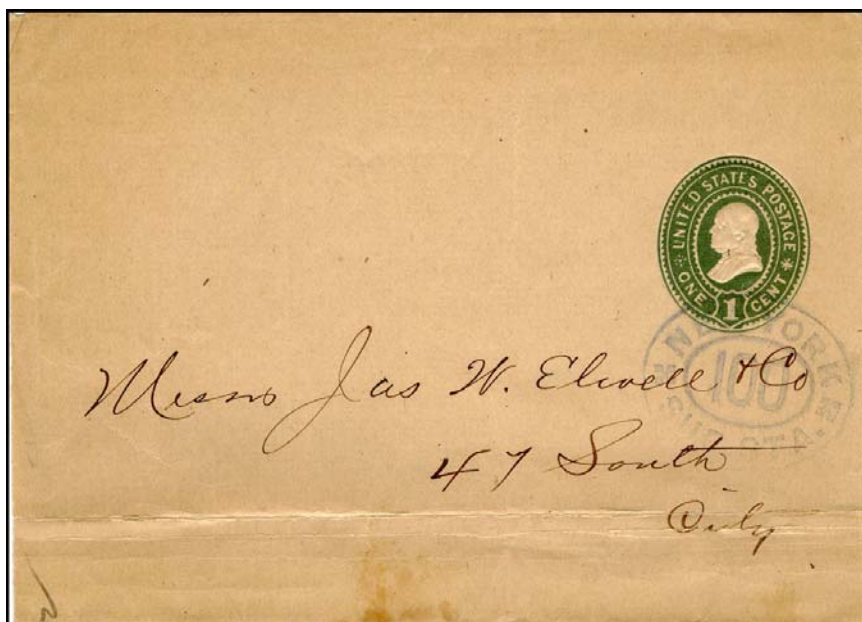 UNITED STATES POSTAGE
ONE 1 CENT
NEW YORK
100
SUB STA.
Messrs Jas W. Elwell & Co
47 South
City